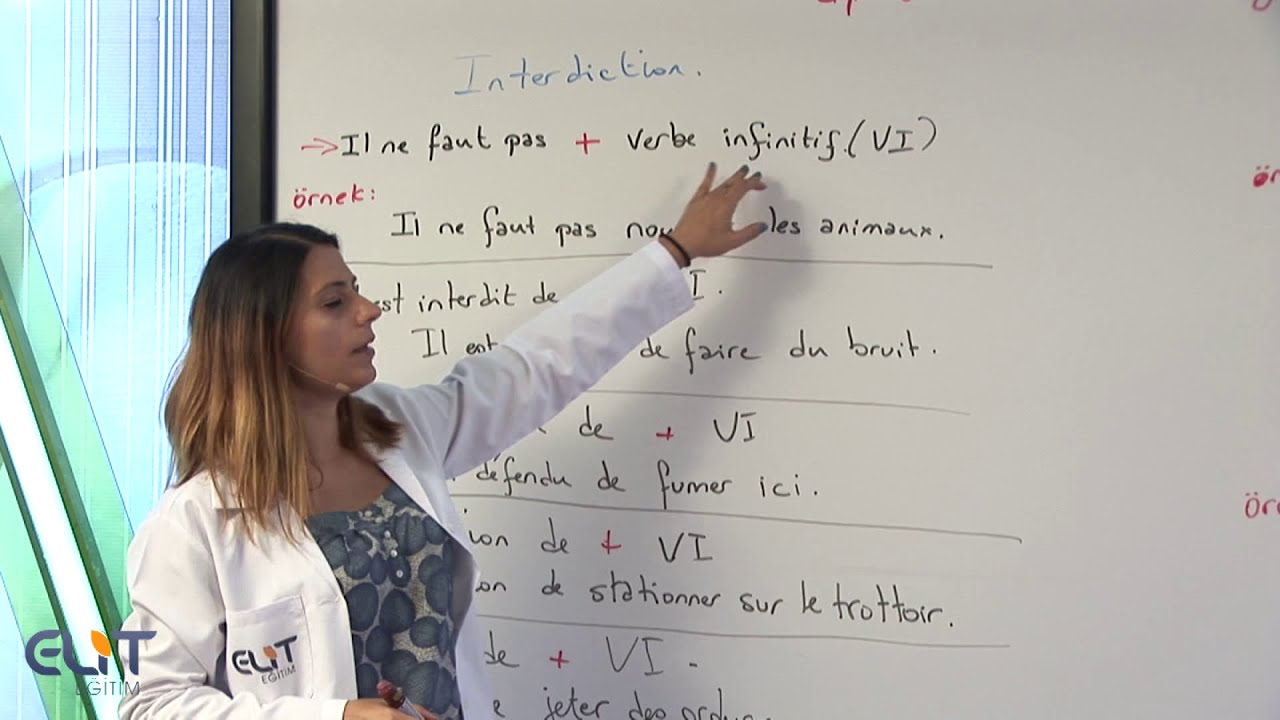 Interdiction.
→ Il ne faut pas + verbe infinitif. (VI)
örnek:
Il ne faut pas les animaux.
est interdit de
Il est de faire du bruit.
de + VI
défendu de fumer ici.
de + VI
de stationner sur le trottoir.
de + VI.
jeter des
ELiT
EĞİTİM
ELiT
EĞİTİM